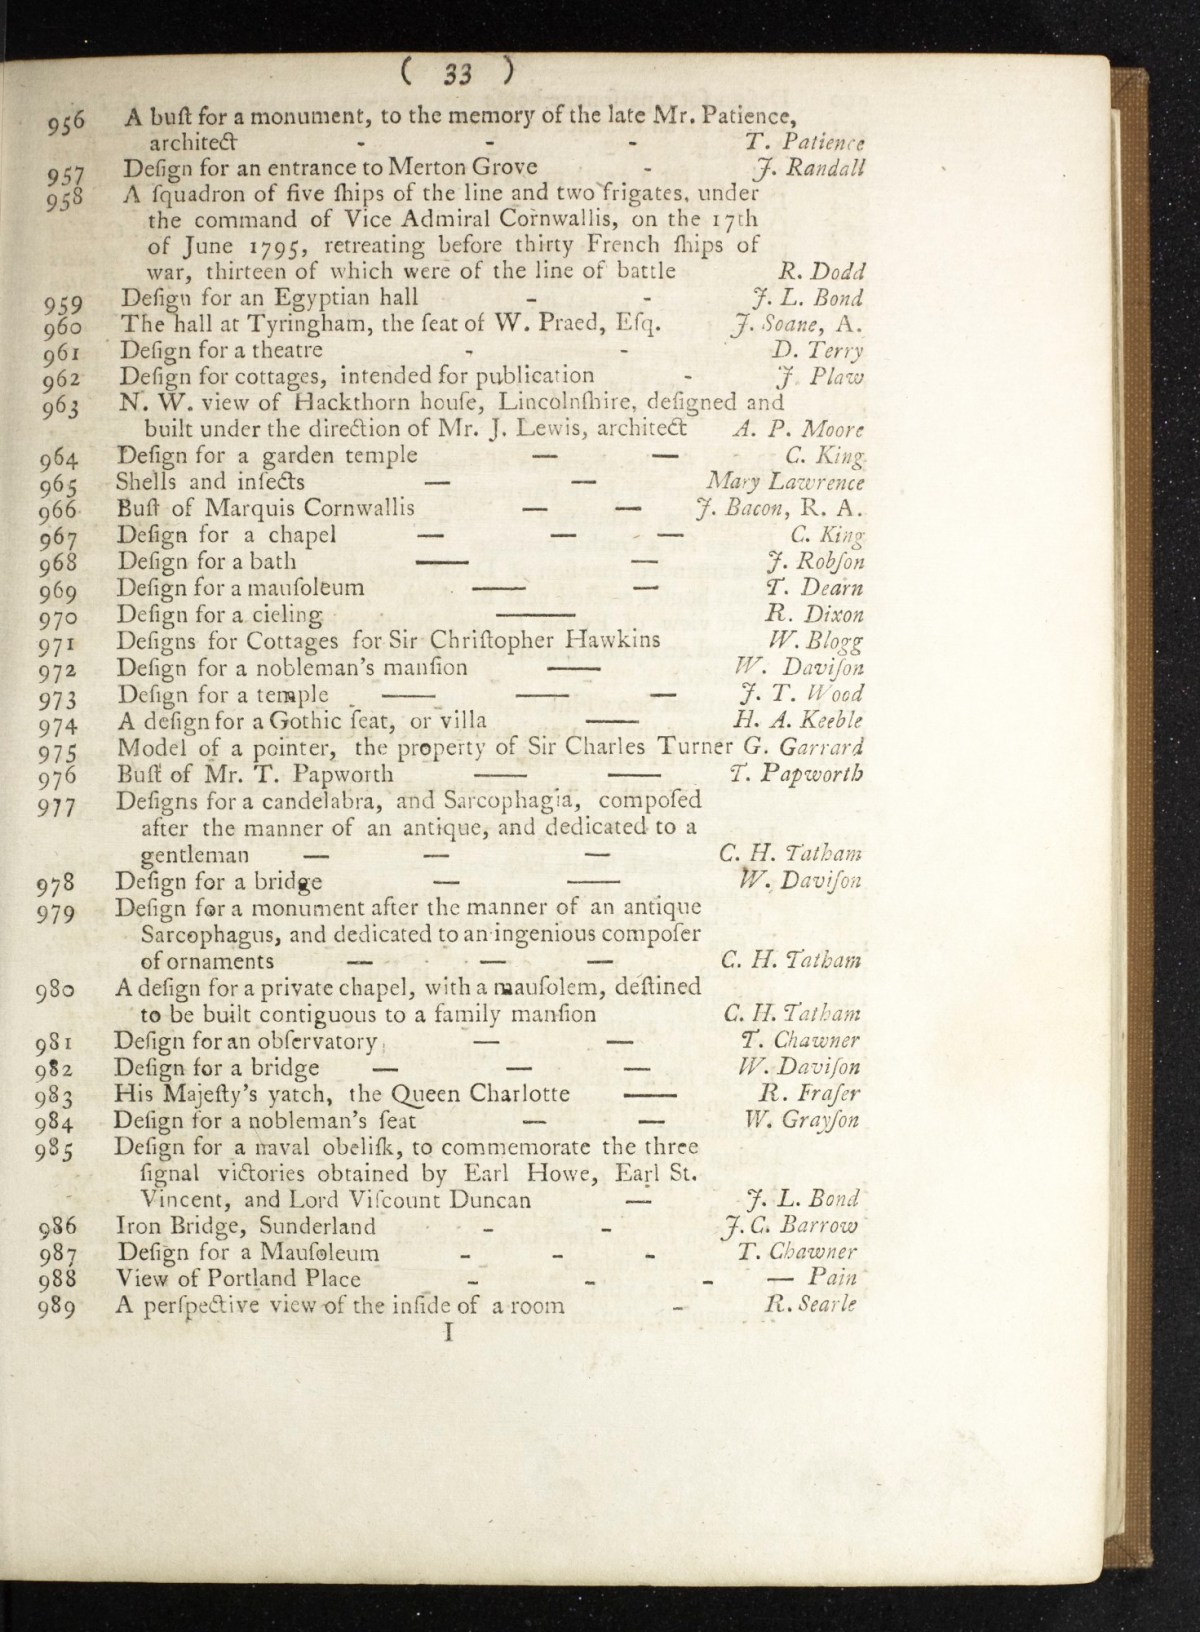 ( 33 )
956 A buſt for a monument, to the memory of the late Mr. Patience,
architect - - - T. Patience
957 Deſign for an entrance to Merton Grove - J. Randall
958 A ſquadron of five ſhips of the line and two frigates, under
the command of Vice Admiral Cornwallis, on the 17th
of June 1795, retreating before thirty French ſhips of
war, thirteen of which were of the line of battle R. Dodd
959 Deſign for an Egyptian hall - - J. L. Bond
960 The hall at Tyringham, the ſeat of W. Praed, Eſq. J. Soane, A.
961 Deſign for a theatre - - D. Terry
962 Deſign for cottages, intended for publication - J. Plaw
963 N. W. view of Hackthorn houſe, Lincolnſhire, deſigned and
built under the direction of Mr. J. Lewis, architect A. P. Moore
964 Deſign for a garden temple — — C. King
965 Shells and inſects — — Mary Lawrence
966 Buſt of Marquis Cornwallis — — J. Bacon, R. A.
967 Deſign for a chapel — — — C. King
968 Deſign for a bath — — J. Robſon
969 Deſign for a mauſoleum — — T. Dearn
970 Deſign for a cieling — R. Dixon
971 Deſigns for Cottages for Sir Chriſtopher Hawkins W. Blogg
972 Deſign for a nobleman's manſion — W. Daviſon
973 Deſign for a temple — — — J. T. Wood
974 A deſign for a Gothic ſeat, or villa — H. A. Keeble
975 Model of a pointer, the property of Sir Charles Turner G. Garrard
976 Buſt of Mr. T. Papworth — — T. Papworth
977 Deſigns for a candelabra, and Sarcophagia, compoſed
after the manner of an antique, and dedicated to a
gentleman — — — C. H. Tatham
978 Deſign for a bridge — — W. Daviſon
979 Deſign for a monument after the manner of an antique
Sarcophagus, and dedicated to an ingenious compoſer
of ornaments — — — C. H. Tatham
980 A deſign for a private chapel, with a mauſolem, deſtined
to be built contiguous to a family manſion C. H. Tatham
981 Deſign for an obſervatory — — T. Chawner
982 Deſign for a bridge — — — W. Daviſon
983 His Majeſty's yatch, the Queen Charlotte — R. Fraſer
984 Deſign for a nobleman's ſeat — — W. Grayſon
985 Deſign for a naval obeliſk, to commemorate the three
ſignal victories obtained by Earl Howe, Earl St.
Vincent, and Lord Viſcount Duncan — J. L. Bond
986 Iron Bridge, Sunderland - - J. C. Barrow
987 Deſign for a Mauſoleum - - - T. Chawner
988 View of Portland Place - - - — Pain
989 A perſpective view of the inſide of a room - R. Searle
I